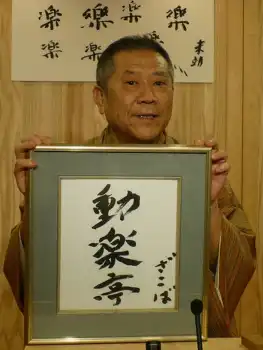 楽 楽 楽 楽
楽 楽 楽
動楽亭
ざこば